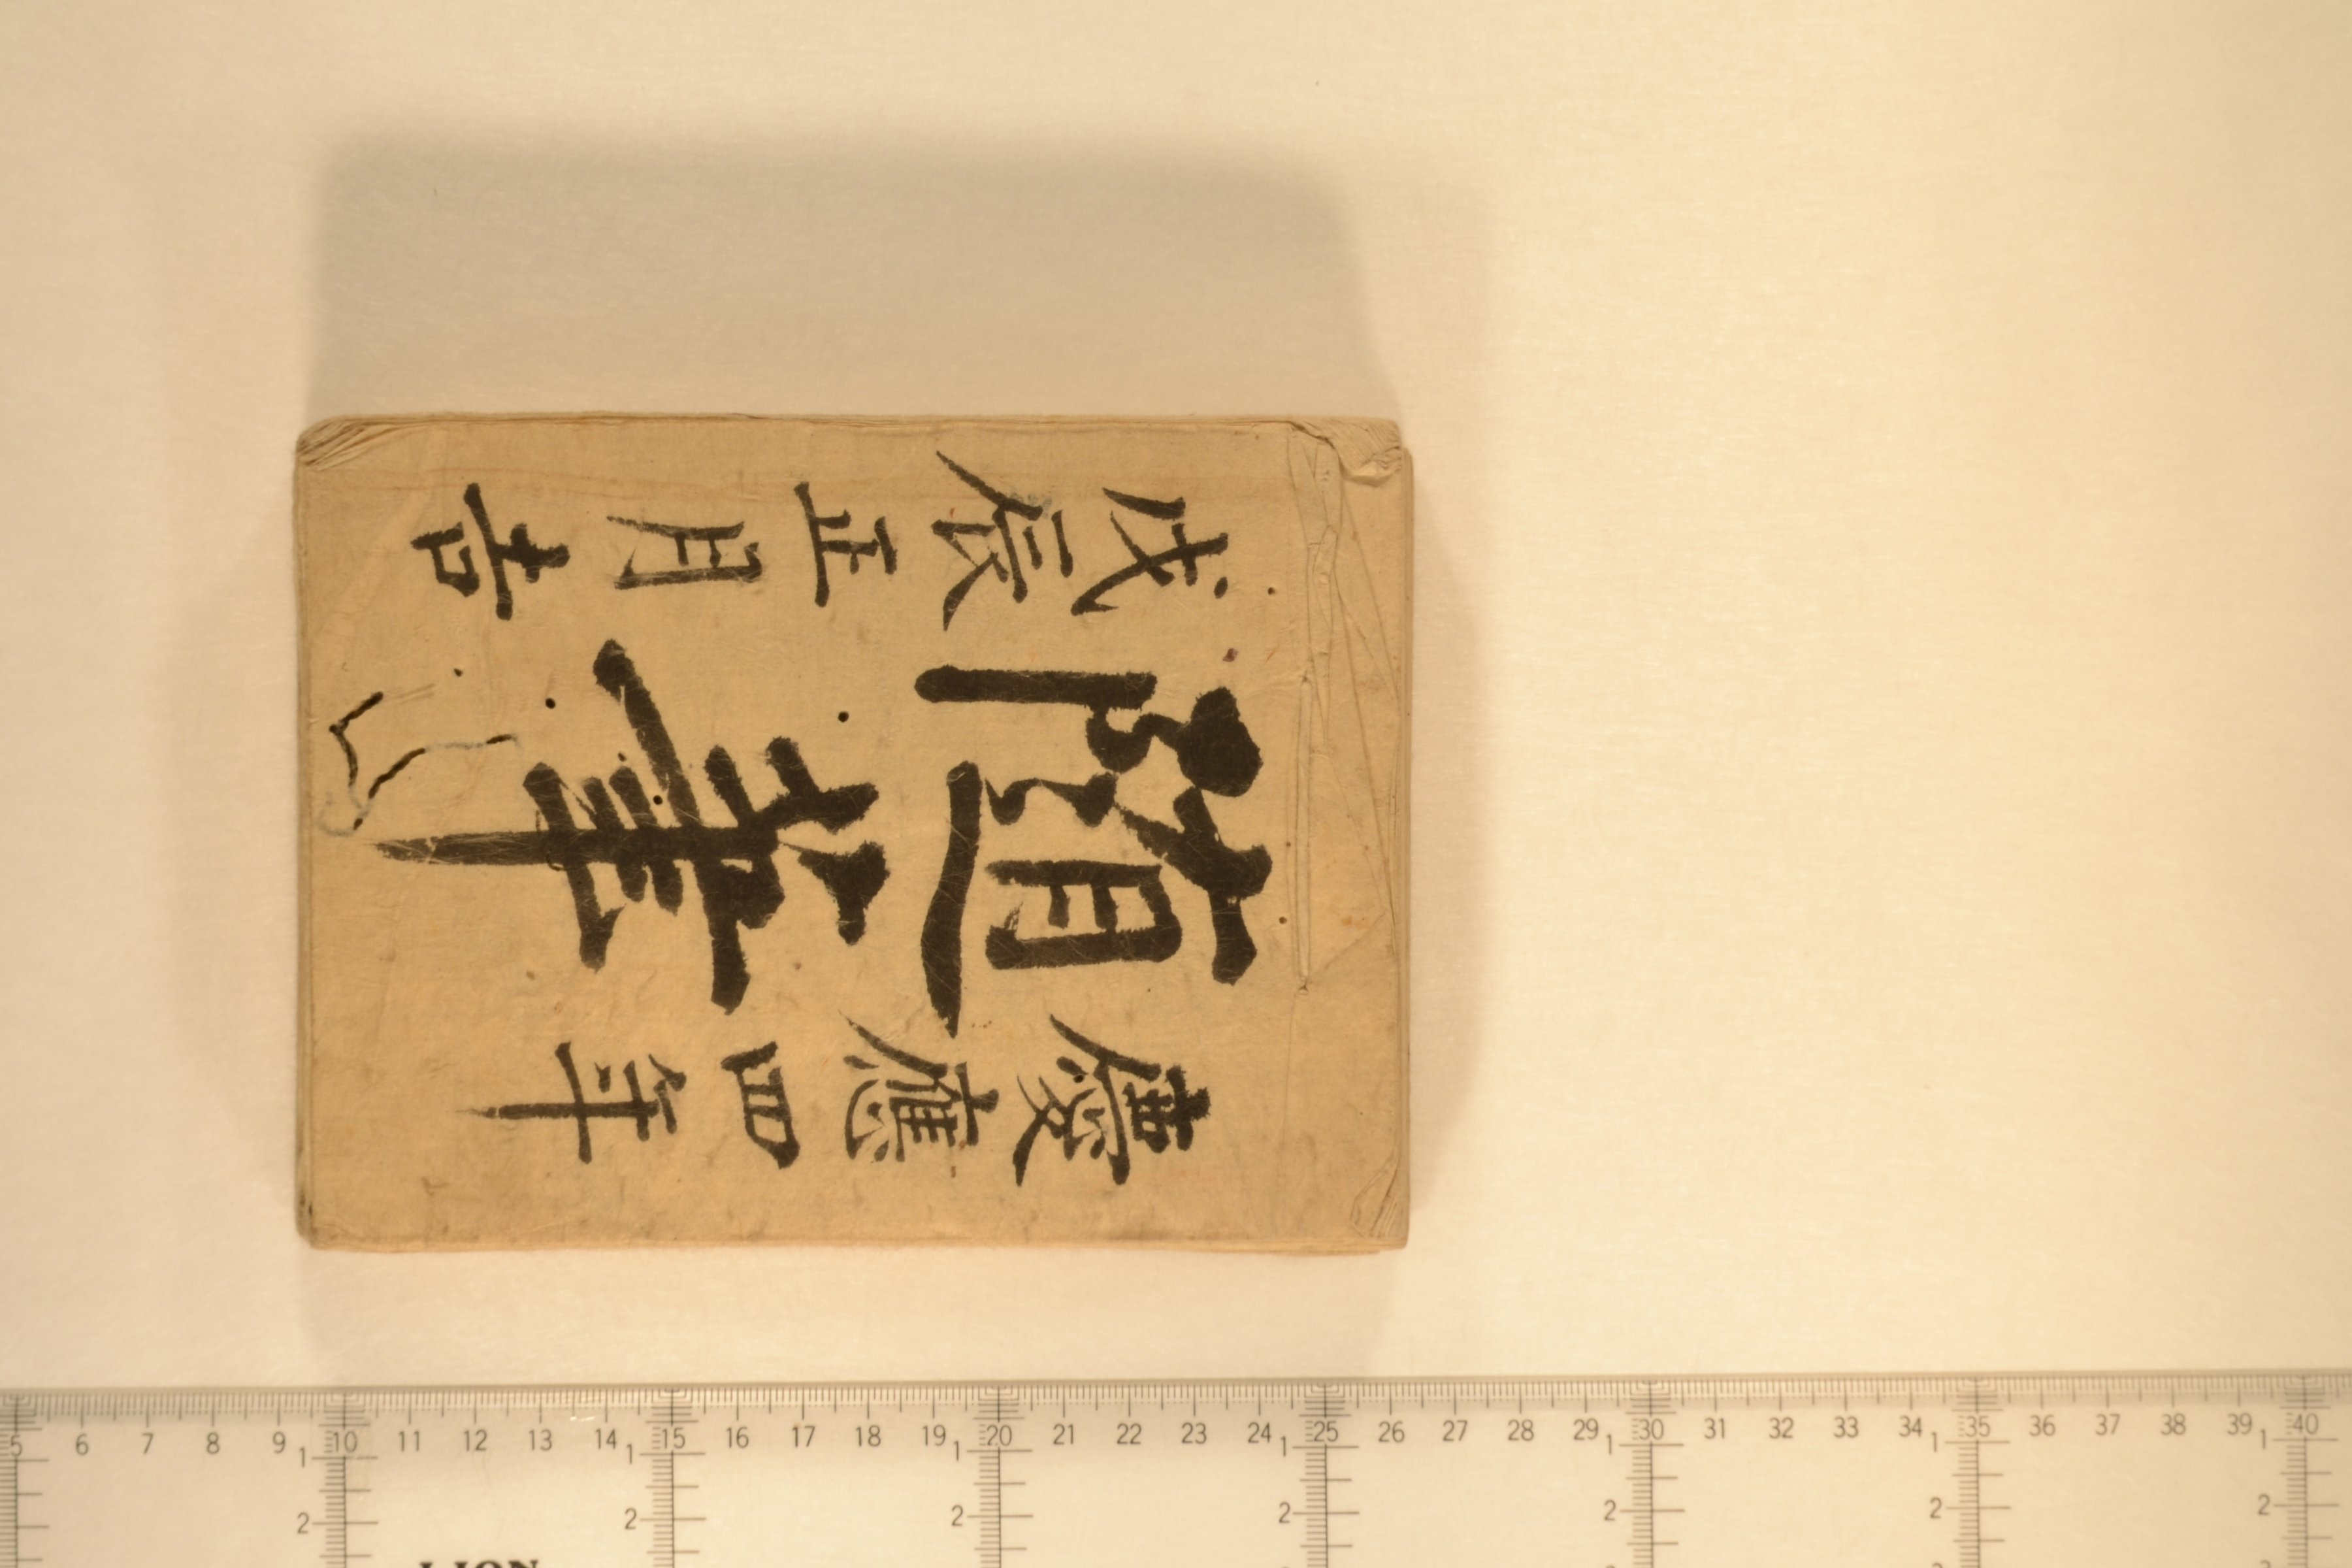 慶應四年
隨筆
戊辰正月吉
5 6 7 8 9 10 11 12 13 14 15 16 17 18 19 20 21 22 23 24 25 26 27 28 29 30 31 32 33 34 35 36 37 38 39 40
1 1 1 1 1 1 1
2 2 2 2 2 2 2
LION